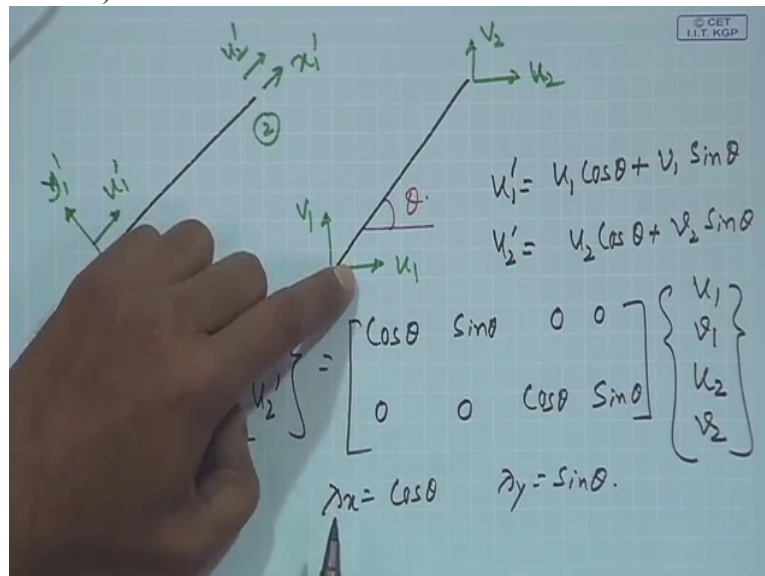 © CET
I.I.T. KGP
u₂' x₁'
②
y₁' u₁'
v₂
u₂
θ.
v₁
u₁
u₁' = u₁ Cosθ + v₁ Sinθ
u₂' = u₂ Cosθ + v₂ Sinθ
u₂' } = [ Cosθ Sinθ 0 0
0 0 Cosθ Sinθ ] { u₁
v₁
u₂
v₂ }
λx = Cosθ λy = Sinθ.